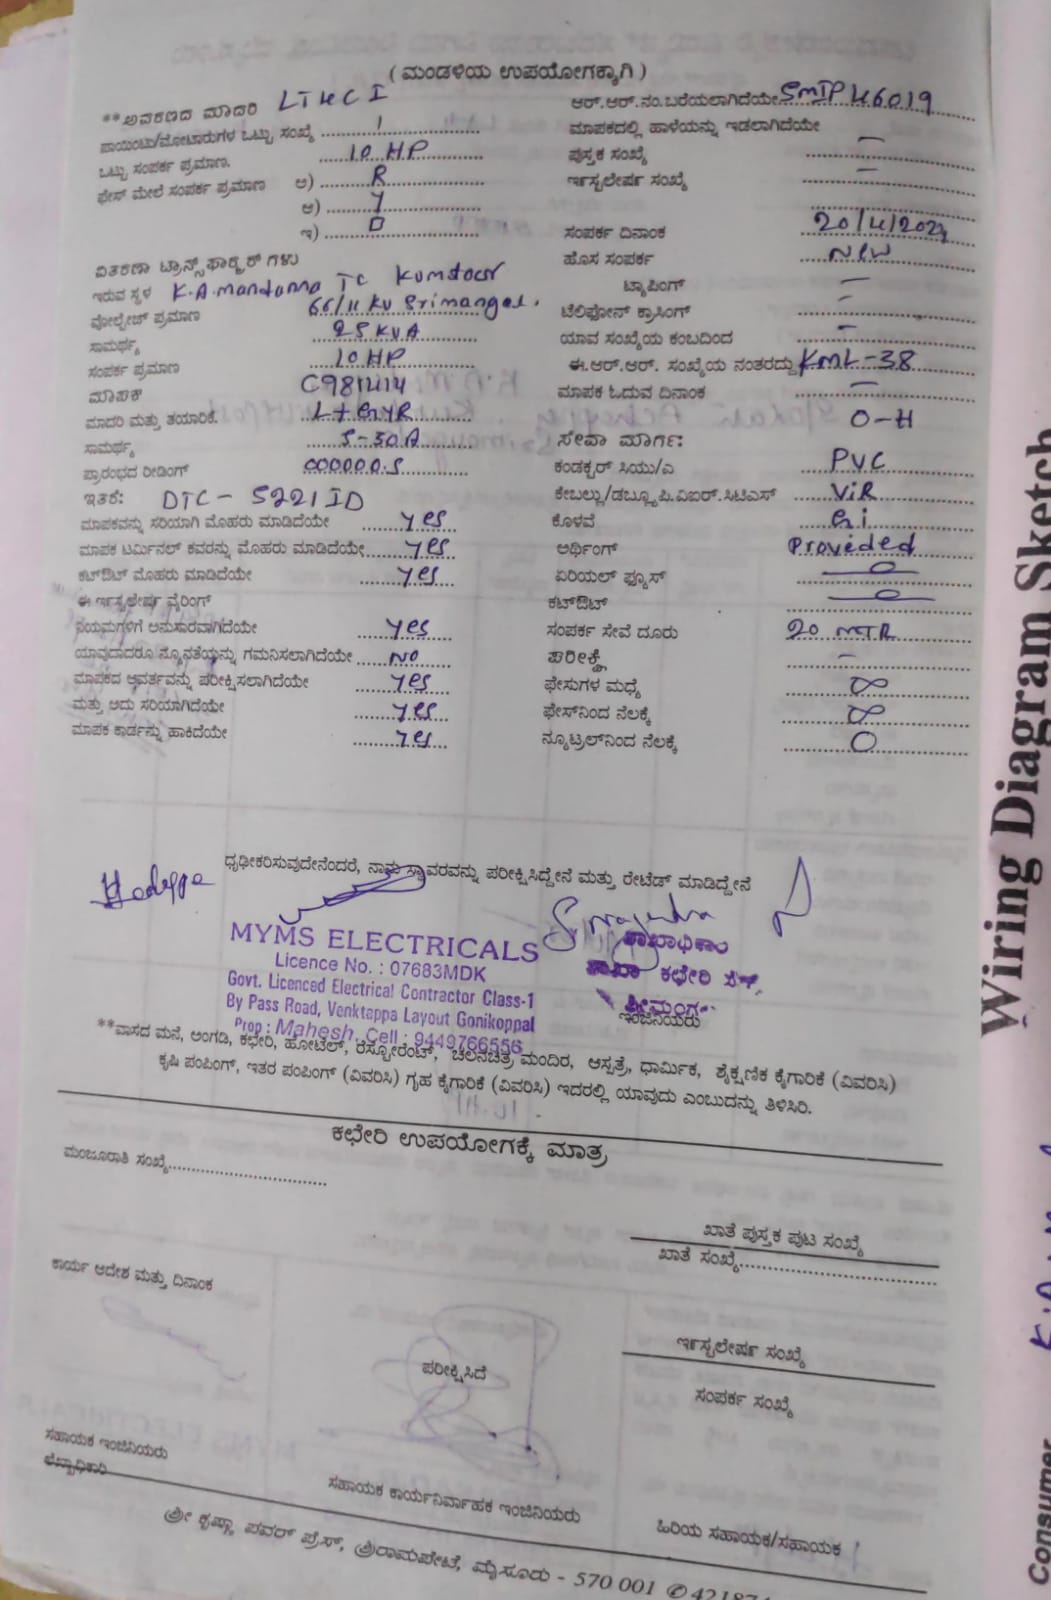 ( ಮಂಡಳಿಯ ಉಪಯೋಗಕ್ಕಾಗಿ )
**ಅವಕರಣದ ಮಾದರಿ LT4C I
ಪಾಯಿಂಟು/ಮೋಟಾರುಗಳ ಒಟ್ಟು ಸಂಖ್ಯೆ 1
ಒಟ್ಟು ಸಂಪರ್ಕ ಪ್ರಮಾಣ. 10 HP
ಫೇಸ್ ಮೇಲೆ ಸಂಪರ್ಕ ಪ್ರಮಾಣ ಅ) R
ಆ) Y
ಇ) B
ವಿತರಣಾ ಟ್ರಾನ್ಸ್‌ಫಾರ್ಮರ್ ಗಳು
ಇರುವ ಸ್ಥಳ K.A.mandanna TC Kumstoor
ವೋಲ್ಟೇಜ್ ಪ್ರಮಾಣ 66/11 KV Srimangal.
ಸಾಮರ್ಥ್ಯ 25 KVA
ಸಂಪರ್ಕ ಪ್ರಮಾಣ 10 HP
ಮಾಪಕ C981414
ಮಾದರಿ ಮತ್ತು ತಯಾರಿಕೆ. L+GnYR
ಸಾಮರ್ಥ್ಯ 5-30A
ಪ್ರಾರಂಭದ ರೀಡಿಂಗ್ 000000.5
ಇತರೆ: DTC - 5221 ID
ಮಾಪಕವನ್ನು ಸರಿಯಾಗಿ ಮೊಹರು ಮಾಡಿದೆಯೇ yes
ಮಾಪಕ ಟರ್ಮಿನಲ್ ಕವರನ್ನು ಮೊಹರು ಮಾಡಿದೆಯೇ yes
ಕಟ್‌ಔಟ್ ಮೊಹರು ಮಾಡಿದೆಯೇ yes
ಈ ಇನ್‌ಸ್ಟಲೇಷನ್ ವೈರಿಂಗ್
ನಿಯಮಗಳಿಗೆ ಅನುಸಾರವಾಗಿದೆಯೇ yes
ಯಾವುದಾದರೂ ನ್ಯೂನತೆಯನ್ನು ಗಮನಿಸಲಾಗಿದೆಯೇ NO
ಮಾಪಕದ ಆವರ್ತವನ್ನು ಪರೀಕ್ಷಿಸಲಾಗಿದೆಯೇ yes
ಮತ್ತು ಅದು ಸರಿಯಾಗಿದೆಯೇ yes
ಮಾಪಕ ಕಾರ್ಡನ್ನು ಹಾಕಿದೆಯೇ yes
ಆರ್.ಆರ್.ನಂ.ಬರೆಯಲಾಗಿದೆಯೇ SmIP46019
ಮಾಪಕದಲ್ಲಿ ಹಾಳೆಯನ್ನು ಇಡಲಾಗಿದೆಯೇ
ಪುಸ್ತಕ ಸಂಖ್ಯೆ –
ಇನ್‌ಸ್ಟಲೇಷನ್ ಸಂಖ್ಯೆ –
ಸಂಪರ್ಕ ದಿನಾಂಕ 20/4/2024
ಹೊಸ ಸಂಪರ್ಕ New
ಟ್ಯಾಪಿಂಗ್ –
ಟೆಲಿಫೋನ್ ಕ್ರಾಸಿಂಗ್ –
ಯಾವ ಸಂಖ್ಯೆಯ ಕಂಬದಿಂದ –
ಈ.ಆರ್.ಆರ್. ಸಂಖ್ಯೆಯ ನಂತರದ್ದು KML-38
ಮಾಪಕ ಓದುವ ದಿನಾಂಕ –
ಸೇವಾ ಮಾರ್ಗ: O-H
ಕಂಡಕ್ಟರ್ ಸಿಯು/ಎ PVC
ಕೇಬಲ್ಲು/ಡಬ್ಲ್ಯೂ.ಪಿ.ವಿಐಆರ್.ಸಿಟಿಎಸ್ ViR
ಕೊಳವೆ Gi
ಅರ್ಥಿಂಗ್ Proveded
ಏರಿಯಲ್ ಫ್ಯೂಸ್ —o—
ಕಟ್‌ಔಟ್ —o—
ಸಂಪರ್ಕ ಸೇವೆ ದೂರು 20 MTR
ಪರೀಕ್ಷೆ –
ಫೇಸುಗಳ ಮಧ್ಯೆ ∞
ಫೇಸ್‌ನಿಂದ ನೆಲಕ್ಕೆ ∞
ನ್ಯೂಟ್ರಲ್‌ನಿಂದ ನೆಲಕ್ಕೆ 0
ಧೃಢೀಕರಿಸುವುದೇನೆಂದರೆ, ನಾನು ಸ್ಥಾವರವನ್ನು ಪರೀಕ್ಷಿಸಿದ್ದೇನೆ ಮತ್ತು ರೇಟೆಡ್ ಮಾಡಿದ್ದೇನೆ
MYMS ELECTRICALS
Licence No. : 07683MDK
Govt. Licenced Electrical Contractor Class-1
By Pass Road, Venktappa Layout Gonikoppal
Prop : Mahesh, Cell : 9449766556
ಶಾಖಾಧಿಕಾರಿ
ಶಾಖಾ ಕಛೇರಿ
ಶ್ರೀಮಂಗಲ
ಇಂಜಿನಿಯರು
**ವಾಸದ ಮನೆ, ಅಂಗಡಿ, ಕಛೇರಿ, ಹೋಟೆಲ್, ರೆಸ್ಟೋರೆಂಟ್, ಚಲನಚಿತ್ರ ಮಂದಿರ, ಆಸ್ಪತ್ರೆ, ಧಾರ್ಮಿಕ, ಶೈಕ್ಷಣಿಕ ಕೈಗಾರಿಕೆ (ವಿವರಿಸಿ)
ಕೃಷಿ ಪಂಪಿಂಗ್, ಇತರ ಪಂಪಿಂಗ್ (ವಿವರಿಸಿ) ಗೃಹ ಕೈಗಾರಿಕೆ (ವಿವರಿಸಿ) ಇದರಲ್ಲಿ ಯಾವುದು ಎಂಬುದನ್ನು ತಿಳಿಸಿರಿ.
ಕಛೇರಿ ಉಪಯೋಗಕ್ಕೆ ಮಾತ್ರ
ಮಂಜೂರಾತಿ ಸಂಖ್ಯೆ
ಖಾತೆ ಪುಸ್ತಕ ಪುಟ ಸಂಖ್ಯೆ
ಖಾತೆ ಸಂಖ್ಯೆ
ಕಾರ್ಯ ಆದೇಶ ಮತ್ತು ದಿನಾಂಕ
ಇನ್‌ಸ್ಟಲೇಷನ್ ಸಂಖ್ಯೆ
ಪರೀಕ್ಷಿಸಿದೆ
ಸಂಪರ್ಕ ಸಂಖ್ಯೆ
ಸಹಾಯಕ ಇಂಜಿನಿಯರು
ಲೆಖ್ಖಾಧಿಕಾರಿ
ಸಹಾಯಕ ಕಾರ್ಯನಿರ್ವಾಹಕ ಇಂಜಿನಿಯರು
ಹಿರಿಯ ಸಹಾಯಕ/ಸಹಾಯಕ
ಶ್ರೀ ಕೃಷ್ಣಾ ಪವರ್ ಪ್ರೆಸ್, ಶ್ರೀರಾಮಪೇಟೆ, ಮೈಸೂರು - 570 001 ✆ 42187
Wiring Diagram Sketch
Consumer